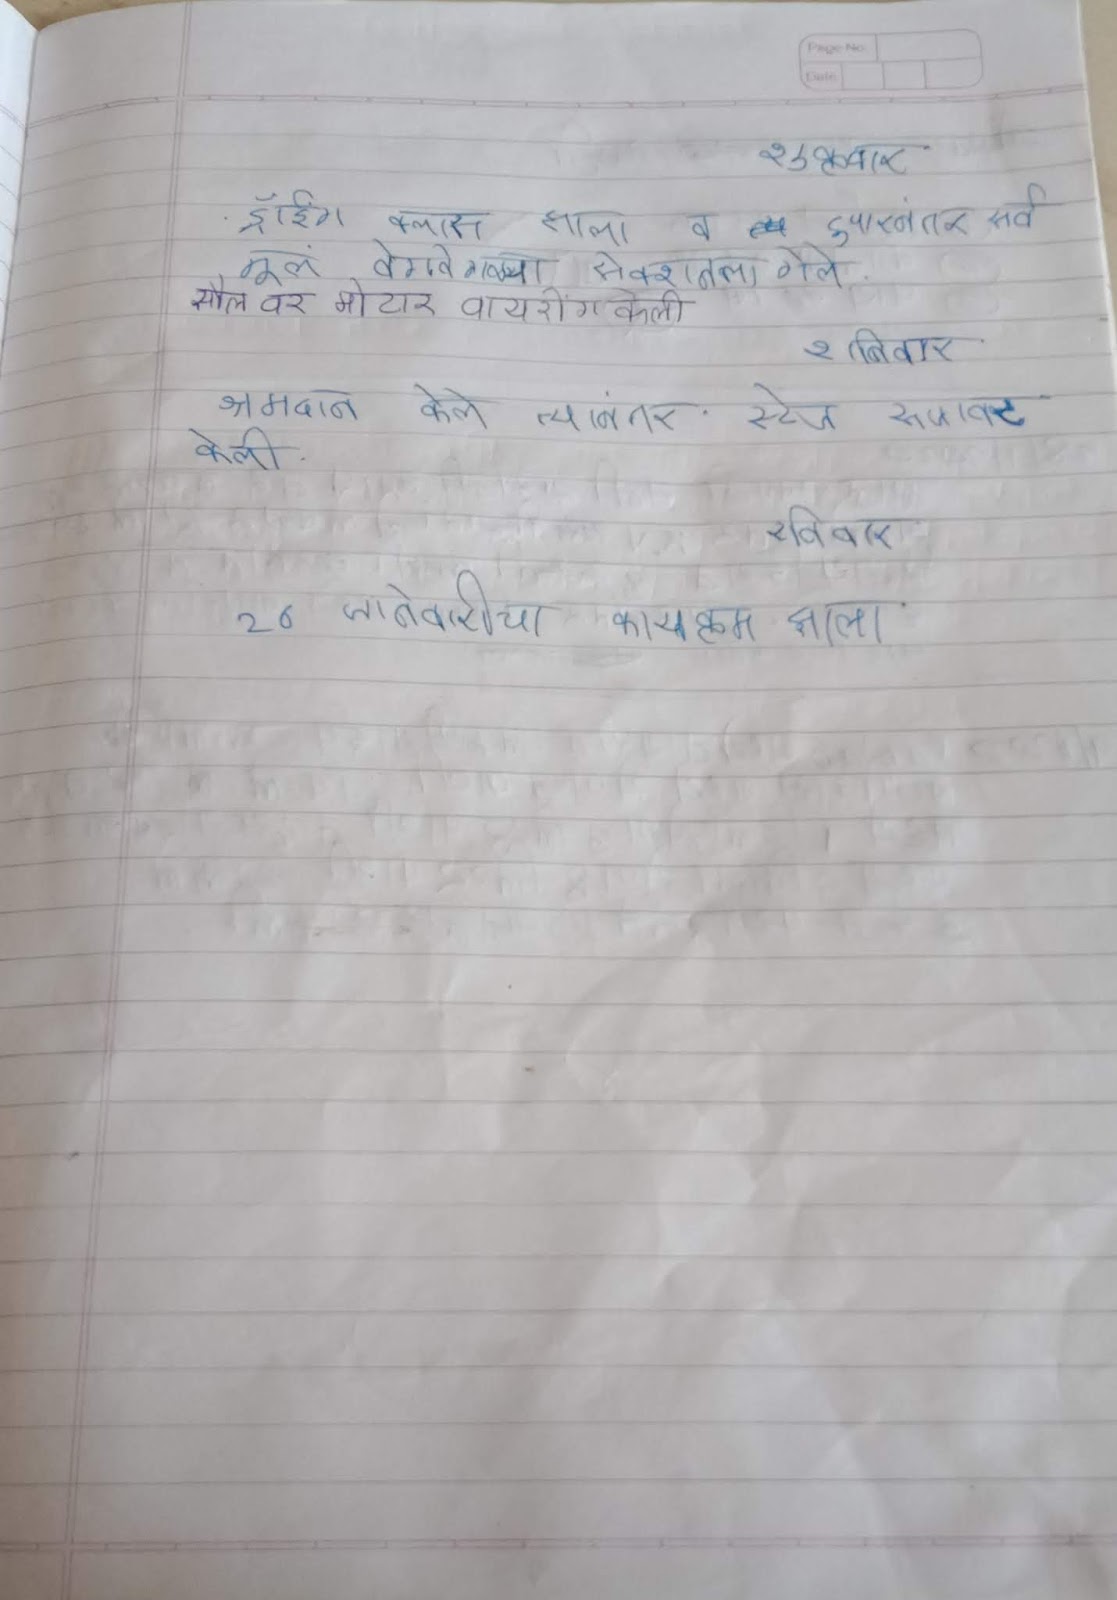 Page No.
Date
शुक्रवार
ड्रॉईंग क्लास झाला व दुपारनंतर सर्व
मूलं वेगवेगळ्या सेक्शनला गेले.
सौलवर मोटार वायरींग केली
शनिवार
श्रमदान केले त्यानंतर. स्टेज सजावट
केली.
रविवार
26 जानेवारीचा कार्यक्रम झाला